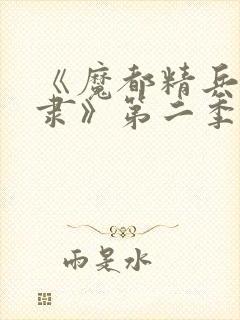 《魔都精兵
隶》第二季
雨是水